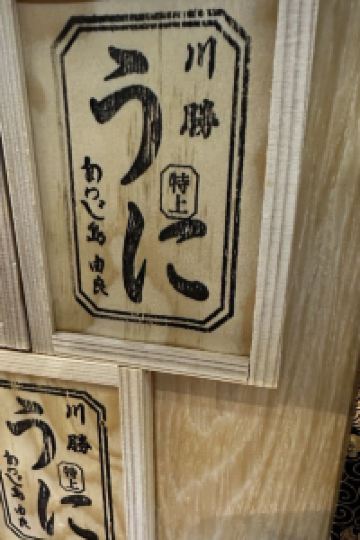 川勝
うに
特上
あわじ島由良
川勝
うに
特上
あわじ島由